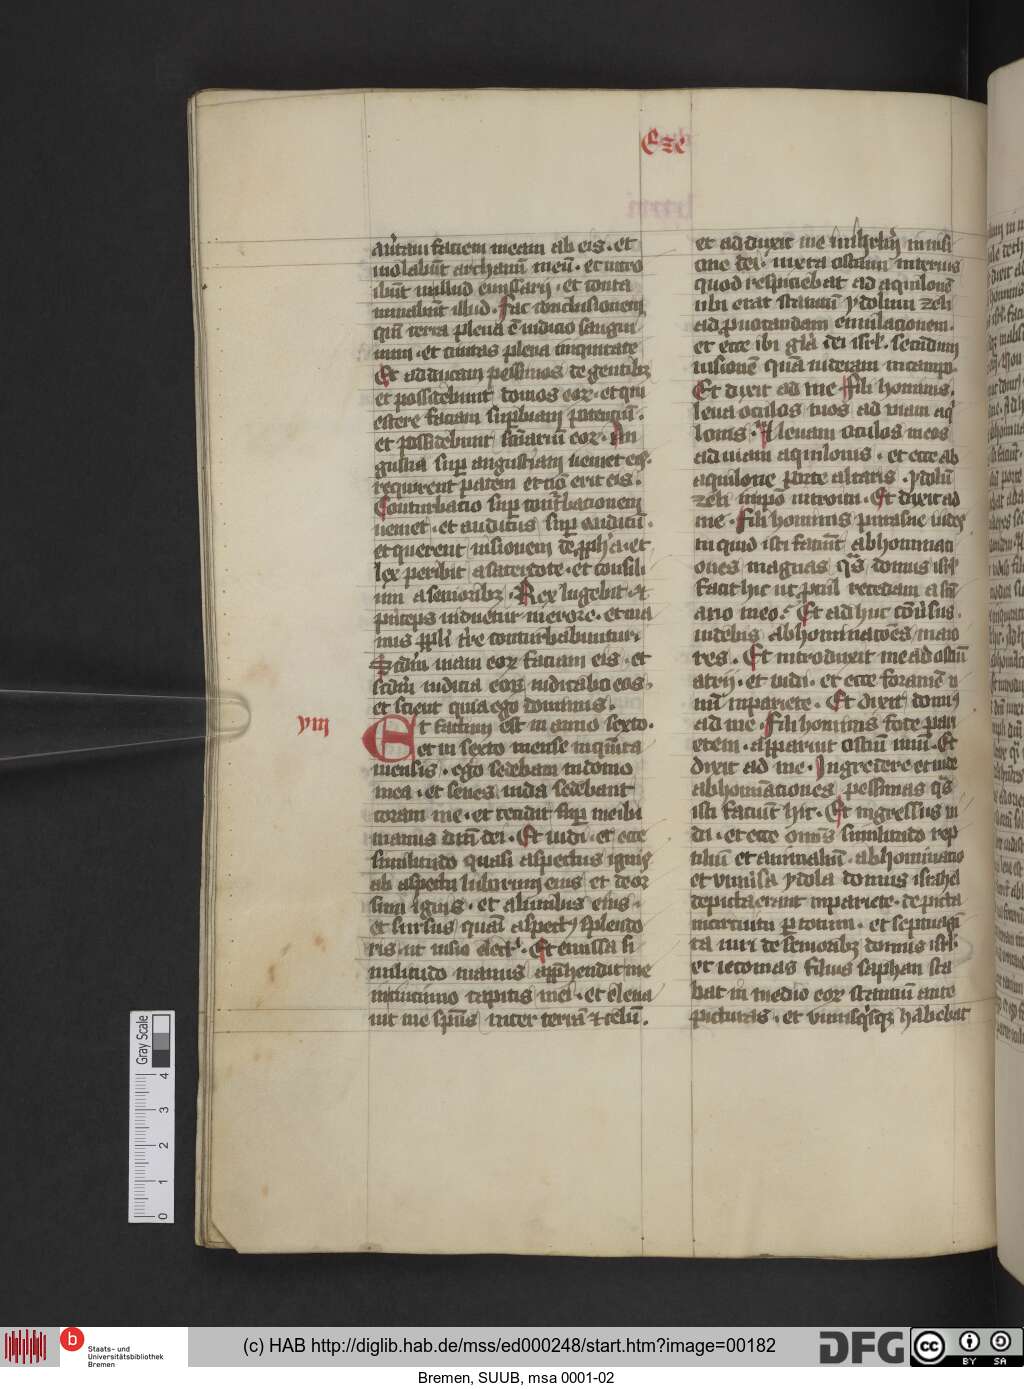 Eze
au͛tam faciem meam ab eis · et
uiolabūt archanū meū · et intro
ibūt in illud emissarij · et conta
minabūt illud · Fac conclusionem
qm̄ terra plena ē iudicio sangui
num · et ciuitas plena iniquitate
Et adducam pessimos de gentibꝫ
et possidebunt domos eoꝝ · et qui
escere faciam suꝑbiam potenciū ·
et possidebunt sc̄uariū eoꝝ · An
gustia suꝑ angustiam ueniet eis ·
requirent pacem et nō erit eis ·
Conturbacio suꝑ cont͛bacionem
ueniet · et auditus suꝑ auditū ·
et querent uisionem de ꝓph͛a · et
lex peribit a sacerdote · et consili
um a senioribꝫ · Rex lugebit · et
princeps induetur merore · et ma
nus ppl̄i t͛re conturbabuntur
Scdm̄ uiam eoꝝ faciam eis · et
scdm̄ iudicia eoꝝ iudicabo eos ·
et scient quia ego dominus ·
viij
Et factum est in anno sexto ·
et in sexto mense in quīta
mensis · ego sedebam in domo
mea · et senes iuda sedebant
coram me · et cecidit suꝑ me ibi
manus dnī dei · Et uidi · et ecce
similitudo quasi aspectus ignis
ab aspectu lumborum eius et deor
sum ignis · et a lumbis eius ·
et sursus quasi aspectꝰ splendo
ris · ut uisio elect͛i · Et emissa si
militudo manus app̄hendit me
in cincinno capitis mei · et eleua
uit me sp̄us inter terrā et celū ·
et adduxit me in ihrlm̄ in uisi
one dei · iuxta ostium interius
quod respiciebat ad aquilonē
ubi erat statutū ydolum zeli
ad ꝓuocandam emulacionem ·
et ecce ibi glīa dei isrl̄ · secundum
uisionē quā uideram in campo ·
Et dixit ad me Fili hominis ·
leua oculos tuos ad uiam aq
lonis · Et leuam oculos meos
ad uiam aquilonis · et ecce ab
aquilone porte altaris · ydolū
zeli in ip̄o introitu · Et dixit ad
me · Fili hominis putasne uides
tu quid isti faciūt abhominaci
ones magnas qᷤs domus isrl̄
facit hic ut ꝓcul recedam a sc̄u
ario meo · Et adhuc cōuersus
uidebis abhominacōēs maio
res · Et introduxit me ad ostiū
atrij · et uidi · et ecce foramē u
nū in pariete · Et dixit dominus
ad me · Fili hominis fode pari
etem · apparuit ostiū unū · Et
dixit ad me · Ingredere et uide
abhominaciones pessimas qᷤs
isti faciūt hic · Et ingressus ui
di · et ecce omnis similitudo rep
tiliū et animaliū · abhominacio
et uniu͛sa ydola domus israhel
depicta erant in pariete · depicta
in circuitu ꝑ totum · et septuagī
ta uiri de senioribꝫ domus isrl̄ ·
et iezonias filius saphan sta
bat in medio eoꝝ stanciū ante
picturas · et unusqͥsqꝫ habebat
Gray Scale
4
3
2
1
0
b
Staats- und
Universitätsbibliothek
Bremen
(c) HAB http://diglib.hab.de/mss/ed000248/start.htm?image=00182
DFG
cc
BY
SA
Bremen, SUUB, msa 0001-02